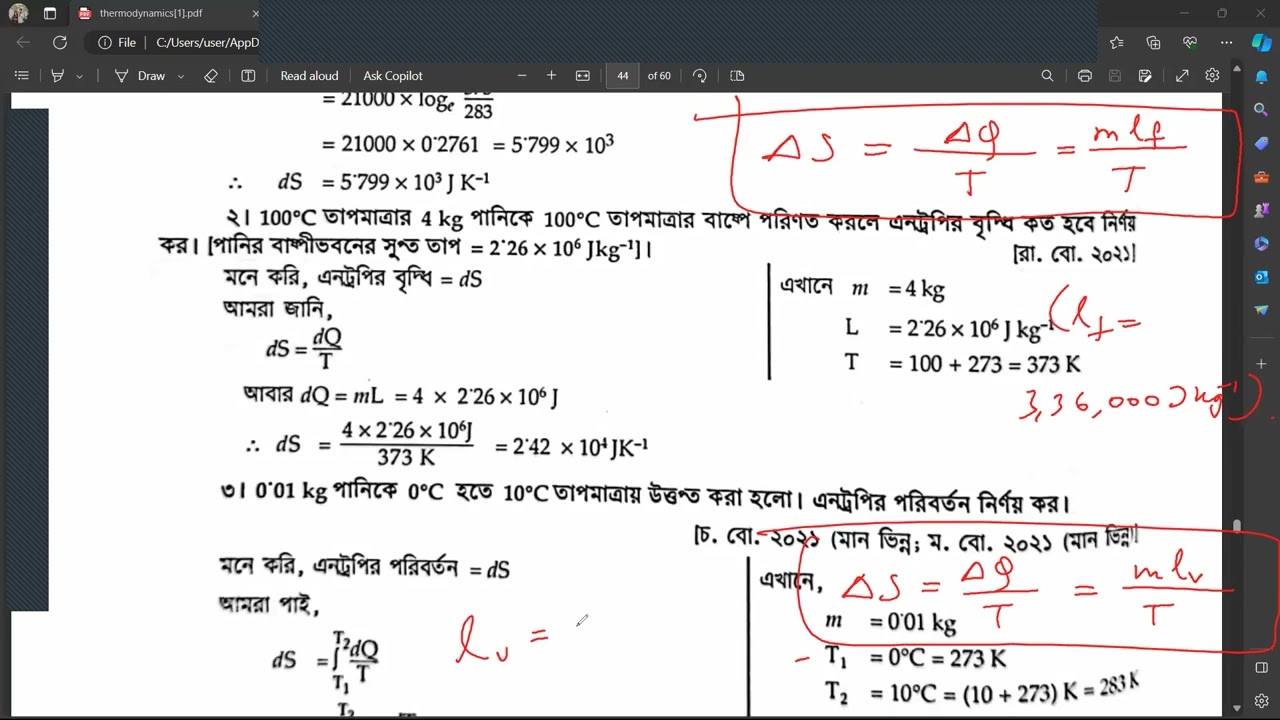 thermodynamics[1].pdf
File C:/Users/user/AppD
Draw Read aloud Ask Copilot 44 of 60
= 21000 × logₑ /283
= 21000 × 0·2761 = 5·799 × 10³
∴ dS = 5·799 × 10³ J K⁻¹
ΔS = ΔQ/T = mlf/T
২। 100°C তাপমাত্রার 4 kg পানিকে 100°C তাপমাত্রার বাষ্পে পরিণত করলে এনট্রপির বৃদ্ধি কত হবে নির্ণয়
কর। [পানির বাষ্পীভবনের সুপ্ত তাপ = 2·26 × 10⁶ Jkg⁻¹]।
[রা. বো. ২০২১]
মনে করি, এনট্রপির বৃদ্ধি = dS
আমরা জানি,
dS = dQ/T
আবার dQ = mL = 4 × 2·26 × 10⁶ J
∴ dS = 4 × 2·26 × 10⁶J/373 K = 2·42 × 10⁴ JK⁻¹
এখানে m = 4 kg
L = 2·26 × 10⁶ J kg⁻¹
T = 100 + 273 = 373 K
(lf =
3,36,000 J kg⁻¹)
৩। 0·01 kg পানিকে 0°C হতে 10°C তাপমাত্রায় উত্তপ্ত করা হলো। এনট্রপির পরিবর্তন নির্ণয় কর।
[চ. বো. ২০২১ (মান ভিন্ন; ম. বো. ২০২১ (মান ভিন্ন)]
মনে করি, এনট্রপির পরিবর্তন = dS
আমরা পাই,
dS = ∫T₁T₂ dQ/T
T₂
lv =
এখানে,
ΔS = ΔQ/T = mlv/T
m = 0·01 kg
T₁ = 0°C = 273 K
T₂ = 10°C = (10 + 273) K = 283 K